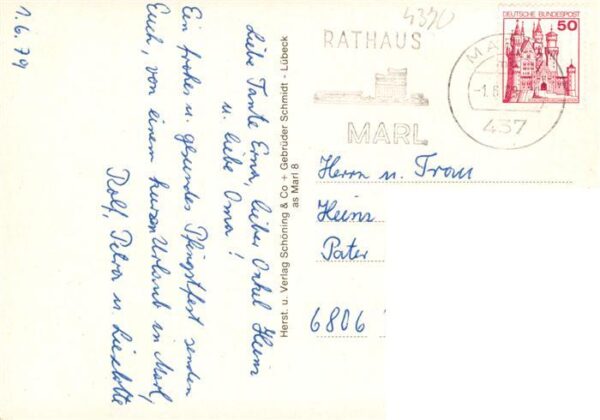 1.6.79
Liebe Tante Erna, lieber Onkel Heinz
u. liebe Oma!
Ein frohes u. gesundes Pfingstfest senden
Euch, von einem kurzen Urlaub in Marl,
Rolf, Petra u. Liselotte
Herst. u. Verlag Schöning & Co + Gebrüder Schmidt - Lübeck
as Marl 8
4390
RATHAUS
MARL
MA
-1.6.79
437
DEUTSCHE BUNDESPOST
50
Herrn u. Frau
Heinz
Pater
6806